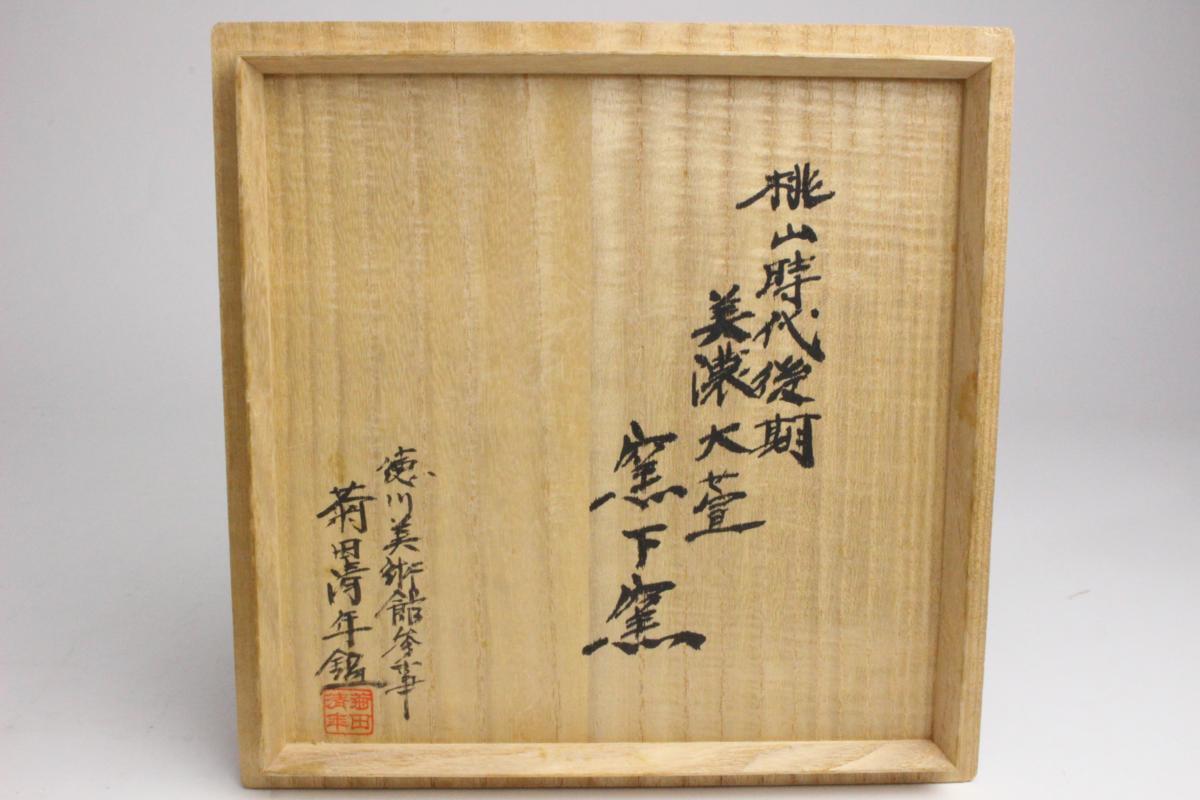 桃山時代後期
美濃大萱
窯下窯
徳川美術館参事
菊田清年鑑
菊田
清年